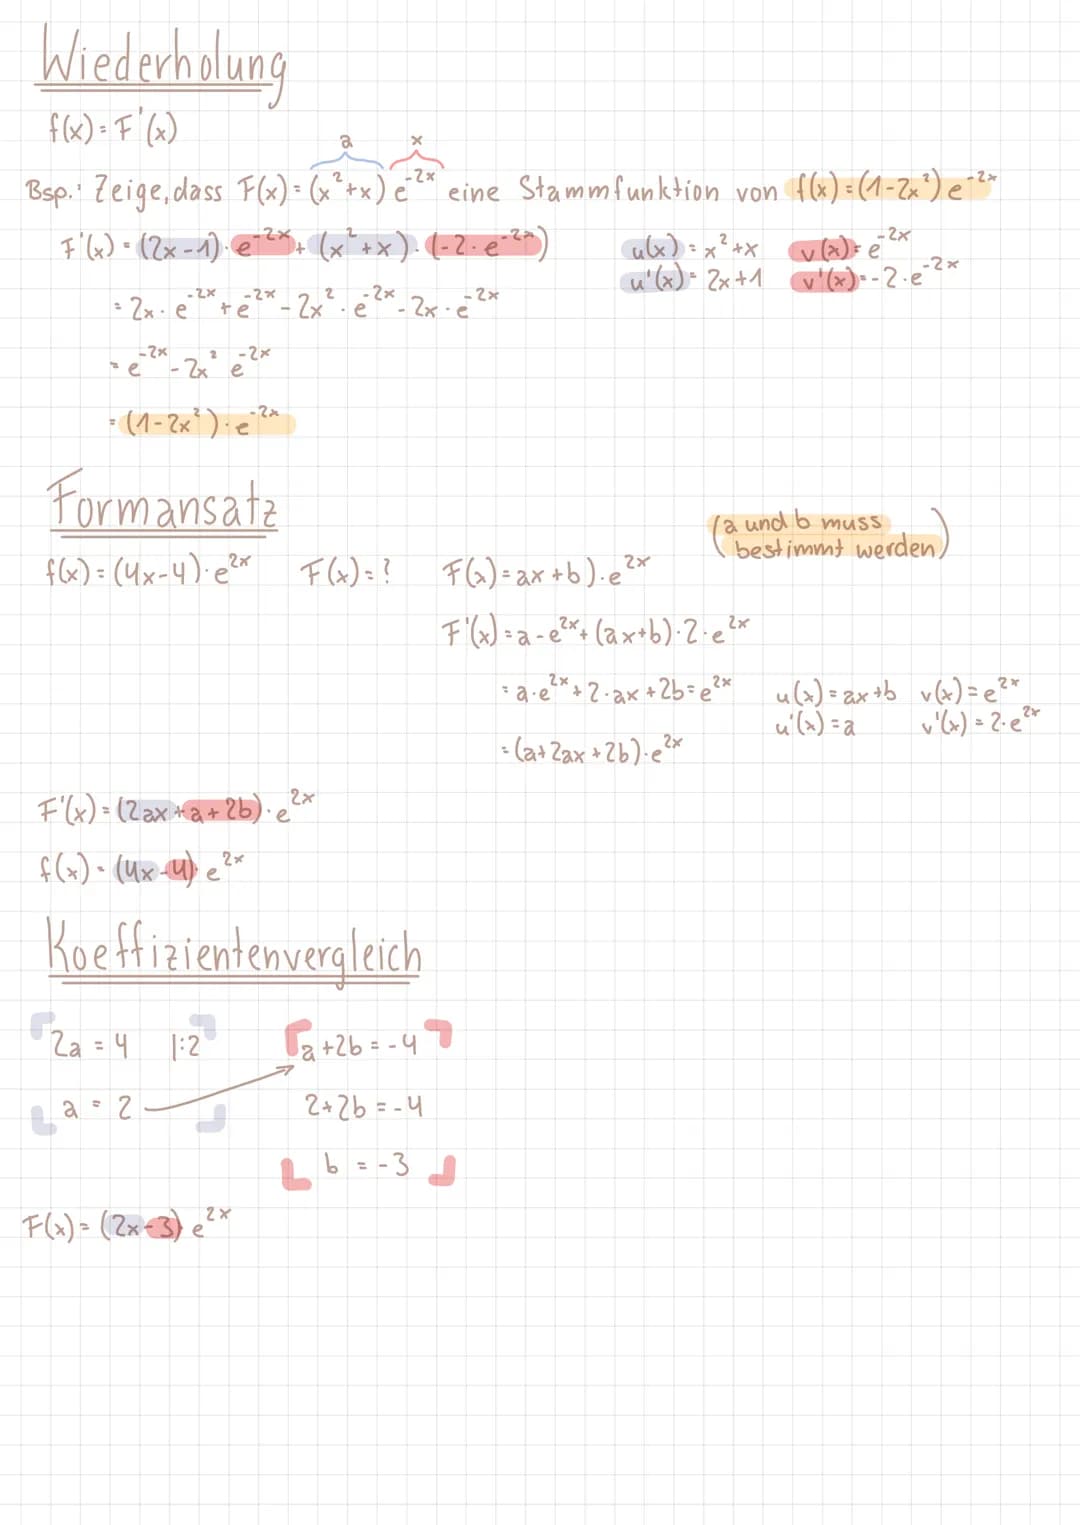 Wiederholung
f(x) = F'(x)
a x
Bsp.: Zeige, dass F(x) = (x²+x) e^-2x eine Stammfunktion von f(x) = (1-2x²) e^-2x
F'(x) = (2x-1) · e^-2x + (x²+x) · (-2 · e^-2x) u(x) = x²+x v(x) = e^-2x
u'(x) = 2x+1 v'(x) = -2 · e^-2x
= 2x · e^-2x + e^-2x - 2x² · e^-2x - 2x · e^-2x
= e^-2x - 2x² e^-2x
= (1-2x²) · e^-2x
Formansatz
(a und b muss
bestimmt werden)
f(x) = (4x-4) · e^2x F(x) = ? F(x) = ax+b) · e^2x
F'(x) = a - e^2x + (ax+b) · 2 · e^2x
= a · e^2x + 2 · ax + 2b = e^2x u(x) = ax+b v(x) = e^2x
u'(x) = a v'(x) = 2 · e^2x
= (a+2ax+2b) · e^2x
F'(x) = (2ax+a+2b) · e^2x
f(x) = (4x-4) e^2x
Koeffizientenvergleich
2a = 4 |:2 a+2b = -4
a = 2 2+2b = -4
b = -3
F(x) = (2x-3) e^2x